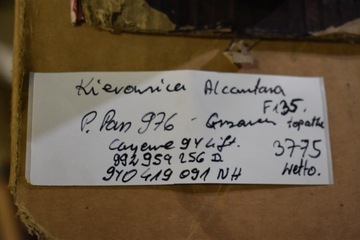 Kierownica Alcantara
F135.
P. Pan 976 - łopatki
Cayenne 9Y Lift.
992 959 256 D 3775
9Y0 419 091 NH netto.